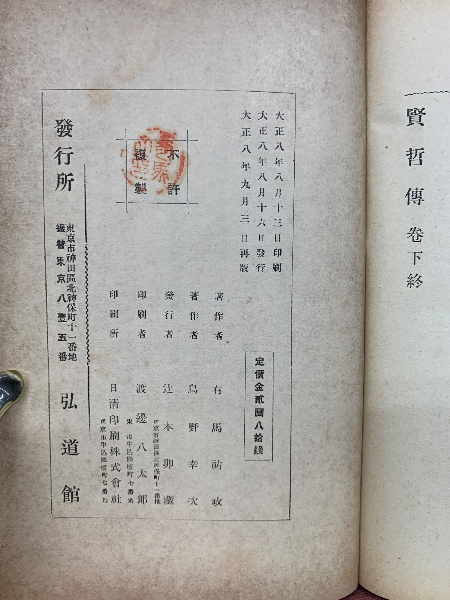 賢哲傳 卷下終
大正八年八月十三日印刷
大正八年八月十六日發行
大正八年九月三日再版
不許
複製
定價金貳圓八拾錢
著作者 有馬祐政
著作者 島野幸次
發行者 辻本卯藏
東京市神田區北神保町十一番地
印刷者 渡邊八太郎
東京市牛込區榎町七番地
印刷所 日清印刷株式會社
東京市牛込區榎町七番地
發行所
東京市神田區北神保町十一番地
振替東京八壹五番
弘道館